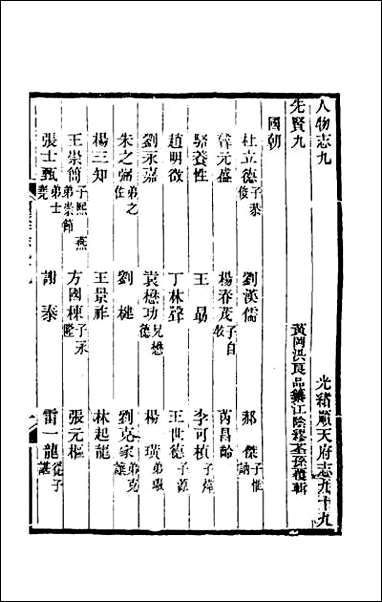 人物志九 光緒順天府志九十九
先賢九 黃岡洪良品纂江陰繆荃孫覆輯
國朝
杜立德子恭俊 劉漢儒 郝傑子惟訥
元盛 楊春茂子自牧 芮昌齡
駱養性 王勗 李可楨子煒
趙明徵 丁林聲 王世德子源
劉永嘉 袁懋功兄懋德 楊璜弟瓛
朱之弼弟之佐 劉楗 劉克家弟克讓
楊三知 王景祚 林起龍
王崇簡子熙燕弟崇節 方國棟子永 張元樞
張士甄弟士 謝泰 雷一龍從子諶